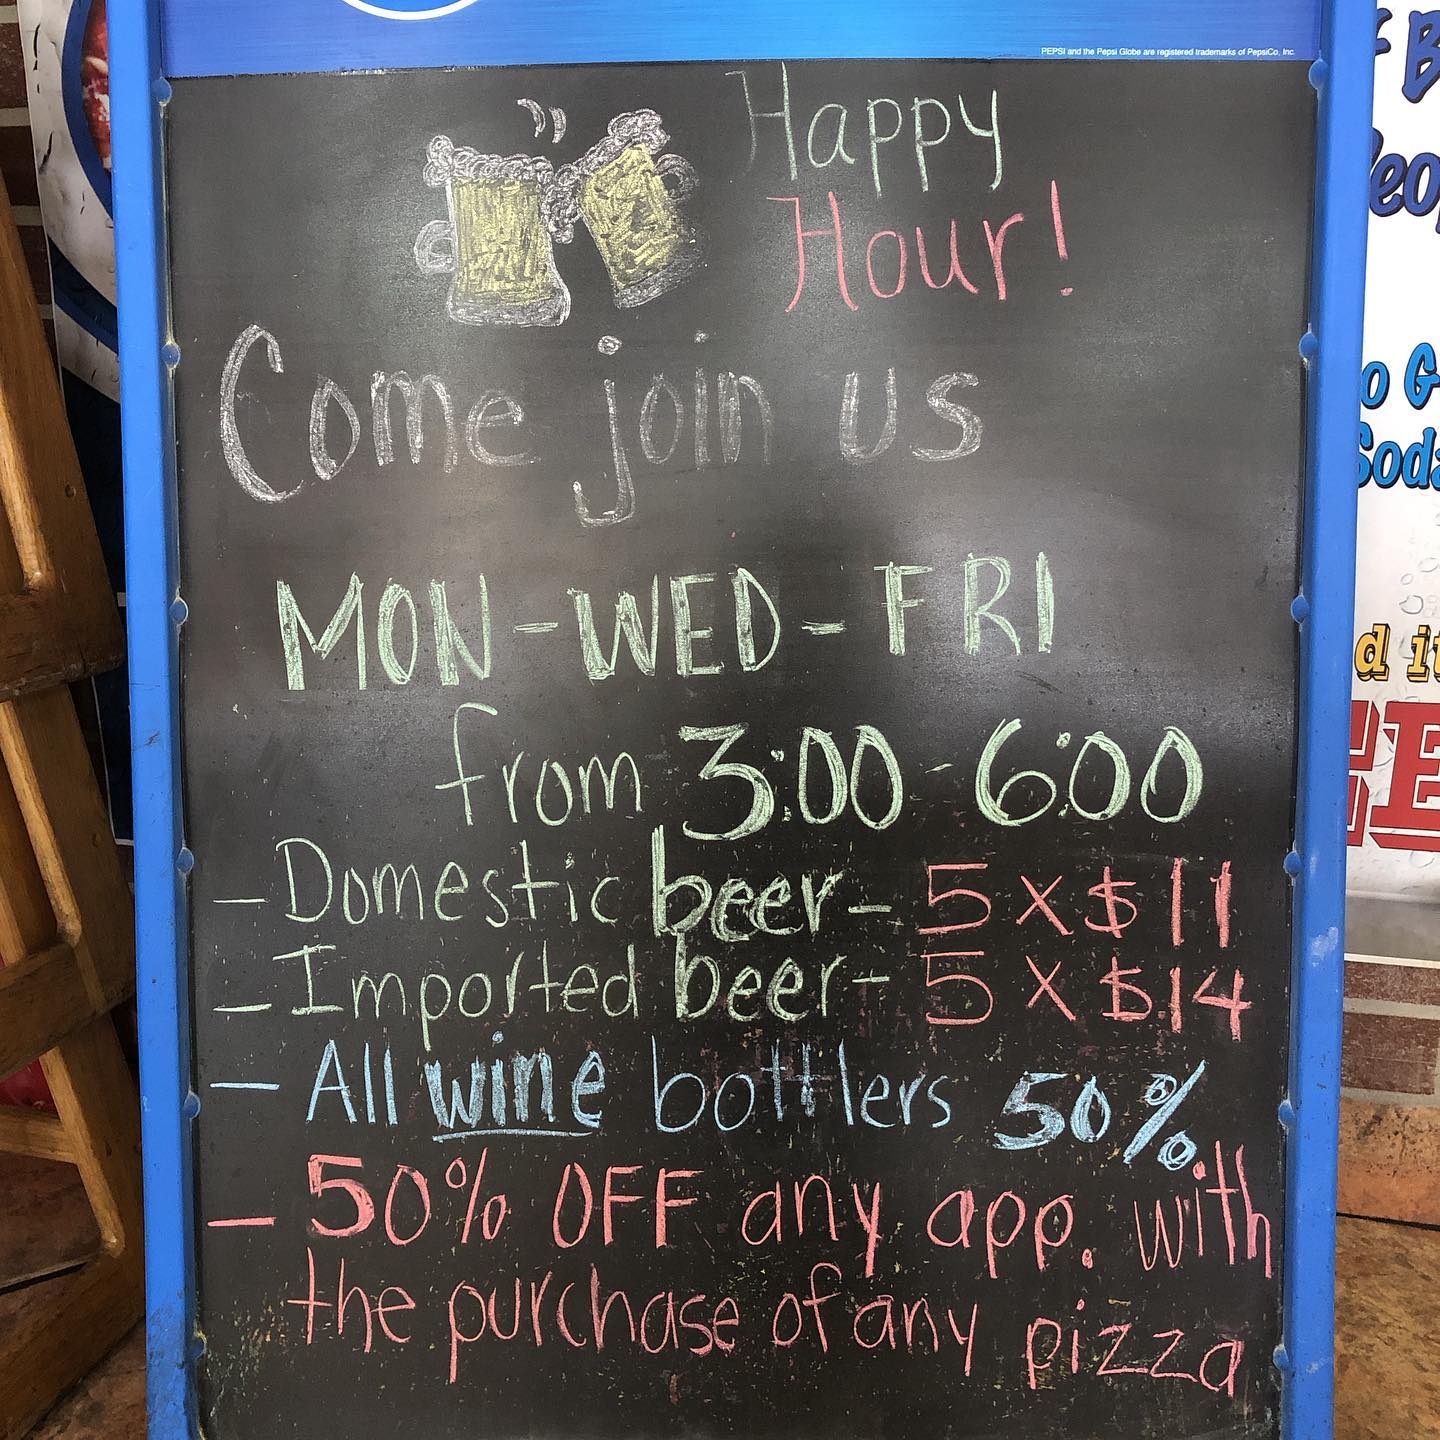 PEPSI and the Pepsi Globe are registered trademarks of PepsiCo, Inc.
Happy
Hour!
Come join us
MON-WED-FRI
from 3:00 - 6:00
- Domestic beer - 5 x $11
- Imported beer - 5 x $14
- All wine bottlers 50%
- 50% OFF any app. with
the purchase of any pizza
Soda